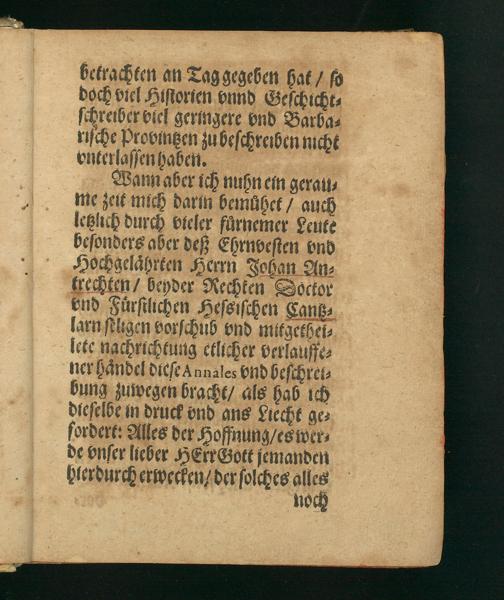 betrachten an Tag gegeben hat / so
doch viel Historien vnnd Geschicht-
schreiber viel geringere vnd Barba-
rische Provintzen zu beschreiben nicht
vnterlassen haben.
Wann aber ich nuhn ein gerau-
me zeit mich darin bemühet / auch
letzlich durch vieler fürnemer Leute
besonders aber deß Ehrnvesten vnd
Hochgelährten Herrn Johan An-
trechten / beyder Rechten Doctor
vnd Fürstlichen Hessischen Cantz-
larn seligen vorschub vnd mitgethei-
lete nachrichtung etlicher verlauffe-
ner händel diese Annales vnd beschrei-
bung zuwegen bracht / als hab ich
dieselbe in druck vnd ans Liecht ge-
fordert: Alles der Hoffnung / es wer-
de vnser lieber HErr Gott jemanden
hierdurch erwecken / der solches alles
noch